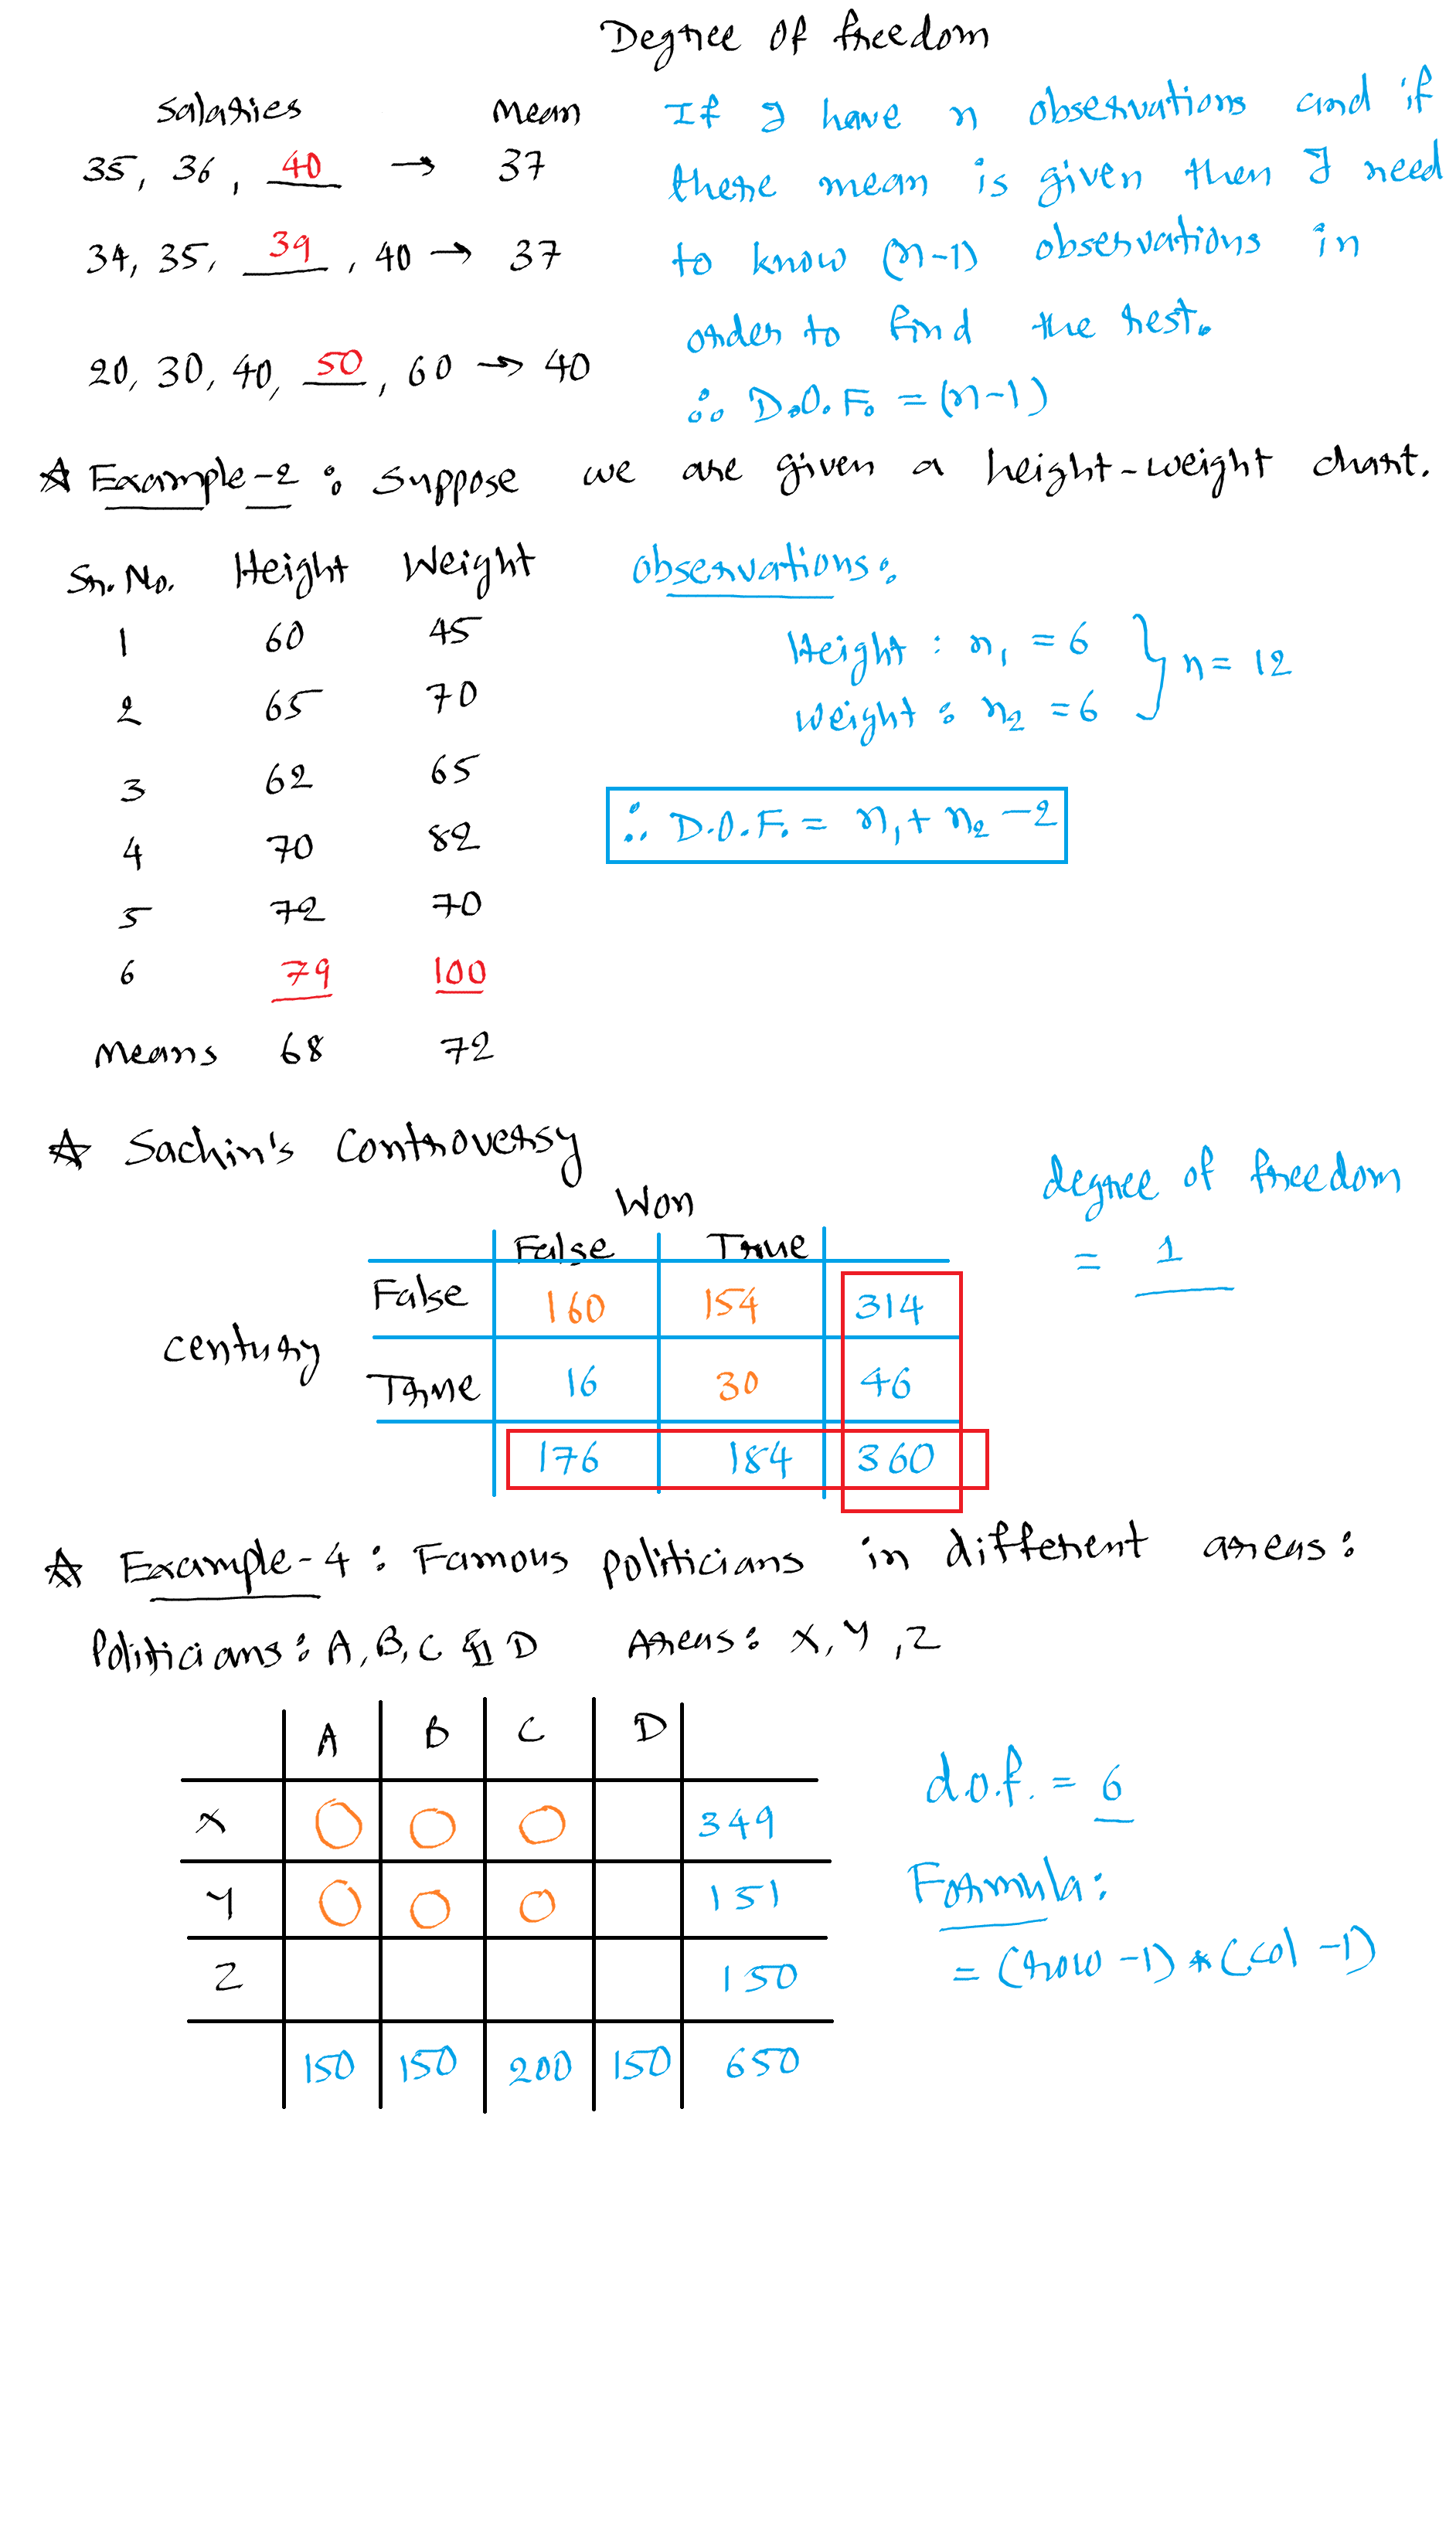 Degree Of freedom
Salaries Mean
35, 36, 40 → 37
34, 35, 39, 40 → 37
20, 30, 40, 50, 60 → 40
If I have n observations and if
there mean is given then I need
to know (n-1) observations in
order to find the rest.
∴ D.O.F. = (n-1)
☆ Example-2: Suppose we are given a height-weight chart.
Sr. No. Height Weight
1 60 45
2 65 70
3 62 65
4 70 82
5 72 70
6 79 100
Means 68 72
observations:
Height : n₁ = 6
weight : n₂ = 6
} n = 12
∴ D.O.F. = n₁ + n₂ - 2
☆ Sachin's Controversy
Won
False True
False 160 154 314
century
True 16 30 46
176 184 360
degree of freedom
= 1
☆ Example-4: Famous politicians in different areas:
Politicians: A, B, C & D Areas: X, Y, Z
A B C D
X O O O 349
Y O O O 151
Z 150
150 150 200 150 650
d.o.f. = 6
Formula:
= (row -1) * (col -1)